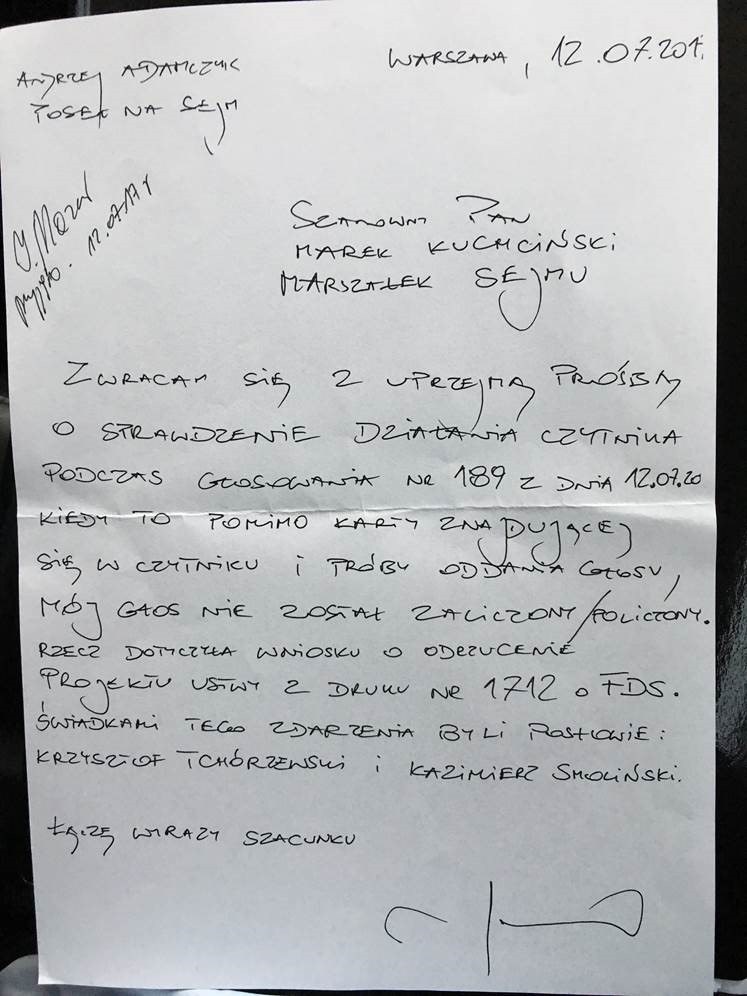 ANDRZEJ ADAMCZYK
POSEŁ NA SEJM
WARSZAWA, 12.07.201
przyjęto. 12.07.17 r
SZANOWNY PAN
MAREK KUCHCIŃSKI
MARSZAŁEK SEJMU
ZWRACAM SIĘ Z UPRZEJMĄ PROŚBĄ
O SPRAWDZENIE DZIAŁANIA CZYTNIKA
PODCZAS GŁOSOWANIA NR 189 Z DNIA 12.07.20
KIEDY TO POMIMO KARTY ZNAJDUJĄCEJ
SIĘ W CZYTNIKU I PRÓBY ODDANIA GŁOSU,
MÓJ GŁOS NIE ZOSTAŁ ZALICZONY/POLICZONY.
RZECZ DOTYCZYŁA WNIOSKU O ODRZUCENIE
PROJEKTU USTWY Z DRUKU NR 1712 O FDS.
ŚWIADKAMI TEGO ZDARZENIA BYLI POSŁOWIE:
KRZYSZTOF TCHÓRZEWSKI I KAZIMIERZ SMOLIŃSKI.
ŁĄCZĘ WYRAZY SZACUNKU